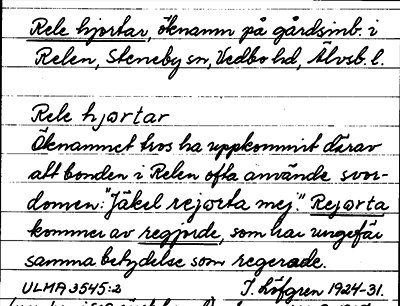 Rele hjortar, öknamn på gårdsinb. i
Relen, Steneby sn, Vedbo hd, Älvsb. l.
Rele hjortar
Öknamnet tros ha uppkommit därav
att bonden i Relen ofta använde svor-
domen: "Jäkel rejorta mej." Rejorta
kommer av regjorde, som har ungefär
samma betydelse som regerade.
ULMA 3545:2 J. Löfgren 1924-31.